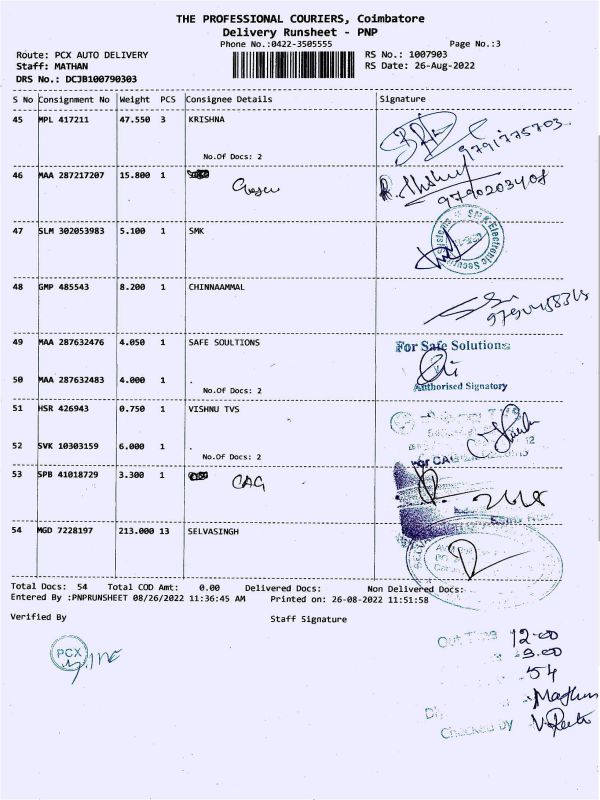 THE PROFESSIONAL COURIERS, Coimbatore
Delivery Runsheet - PNP
Phone No.:0422-3505555
Page No.:3
Route: PCX AUTO DELIVERY
RS No.: 1007903
Staff: MATHAN
RS Date: 26-Aug-2022
DRS No.: DCJB100790303
S No Consignment No Weight PCS Consignee Details Signature
45 MPL 417211 47.550 3 KRISHNA
9791775703
No.Of Docs: 2
46 MAA 287217207 15.800 1
9790203408
47 SLM 302053983 5.100 1 SMK
SMK Electronic Security Systems
48 GMP 485543 8.200 1 CHINNAAMMAL
49 MAA 287632476 4.050 1 SAFE SOULTIONS
For Safe Solutions
50 MAA 287632483 4.000 1
No.Of Docs: 2
Authorised Signatory
51 HSR 426943 0.750 1 VISHNU TVS
52 SVK 10303159 6.000 1
No.Of Docs: 2
For CAG
53 SPB 41018729 3.300 1 CAG
54 MGD 7228197 213.000 13 SELVASINGH
Total Docs: 54 Total COD Amt: 0.00 Delivered Docs: Non Delivered Docs:
Entered By :PNPRUNSHEET 08/26/2022 11:36:45 AM Printed on: 26-08-2022 11:51:58
Verified By Staff Signature
PCX
Out Time 12.00
9.00
54
Checked by